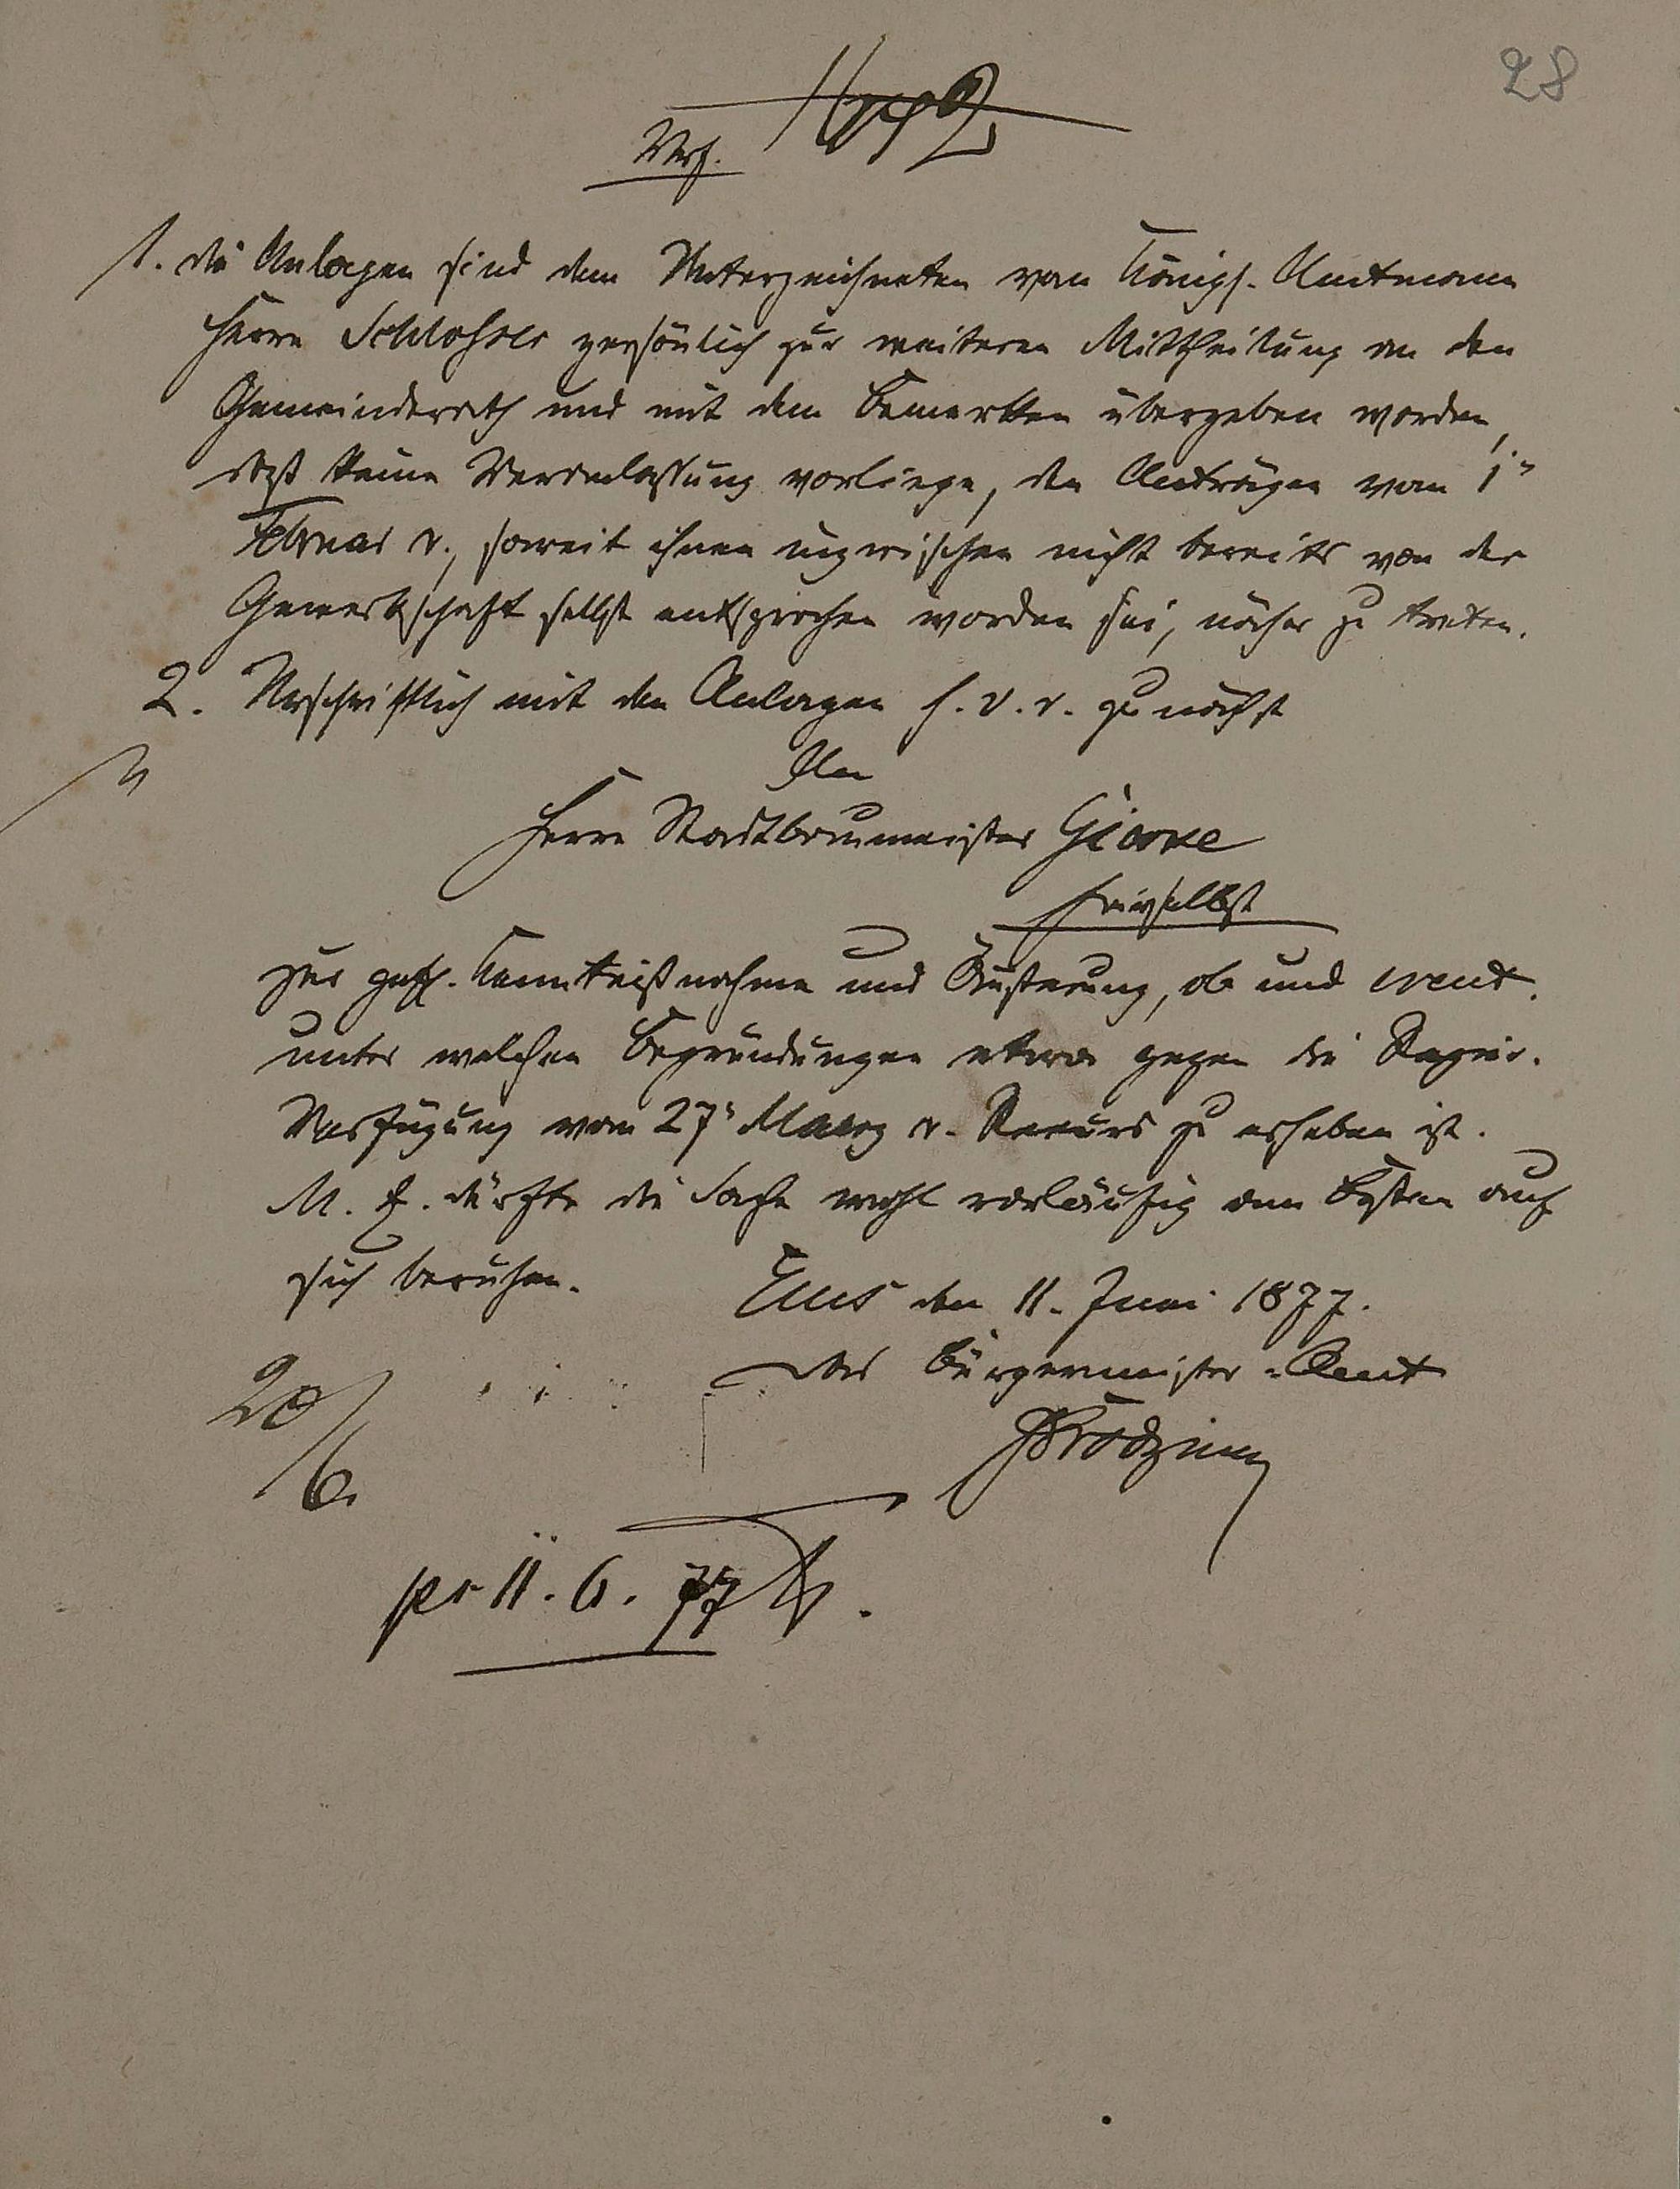 28
Verf.
1. Die Anlagen sind dem Unterzeichneten vom Königl. Amtmann
Herrn Schlosser persönlich zur weiteren Mittheilung an den
Gemeinderath und mit dem Bemerken übergeben worden,
daß keine Veranlassung vorliege, den Anträgen vom 1"
Februar c., soweit ihnen inzwischen nicht bereits von der
Gewerkschaft selbst entsprochen worden sei, näher zu treten.
2. Urschriftlich mit den Anlagen s. v. r. zunächst
An
Herrn Stadtbaumeister
hierselbst
zur gefl. Kenntnißnahme und Äußerung, ob und event.
unter welchen Begründungen etwa gegen die Regier.
Verfügung vom 27" Maerz c. Recurs zu erheben ist.
M. E. dürfte die Sache wohl vorläufig am Besten auf
sich beruhen.
Ems den 11. Juni 1877.
Das Bürgermeister-Amt
20/6.
pr 11. 6. 77